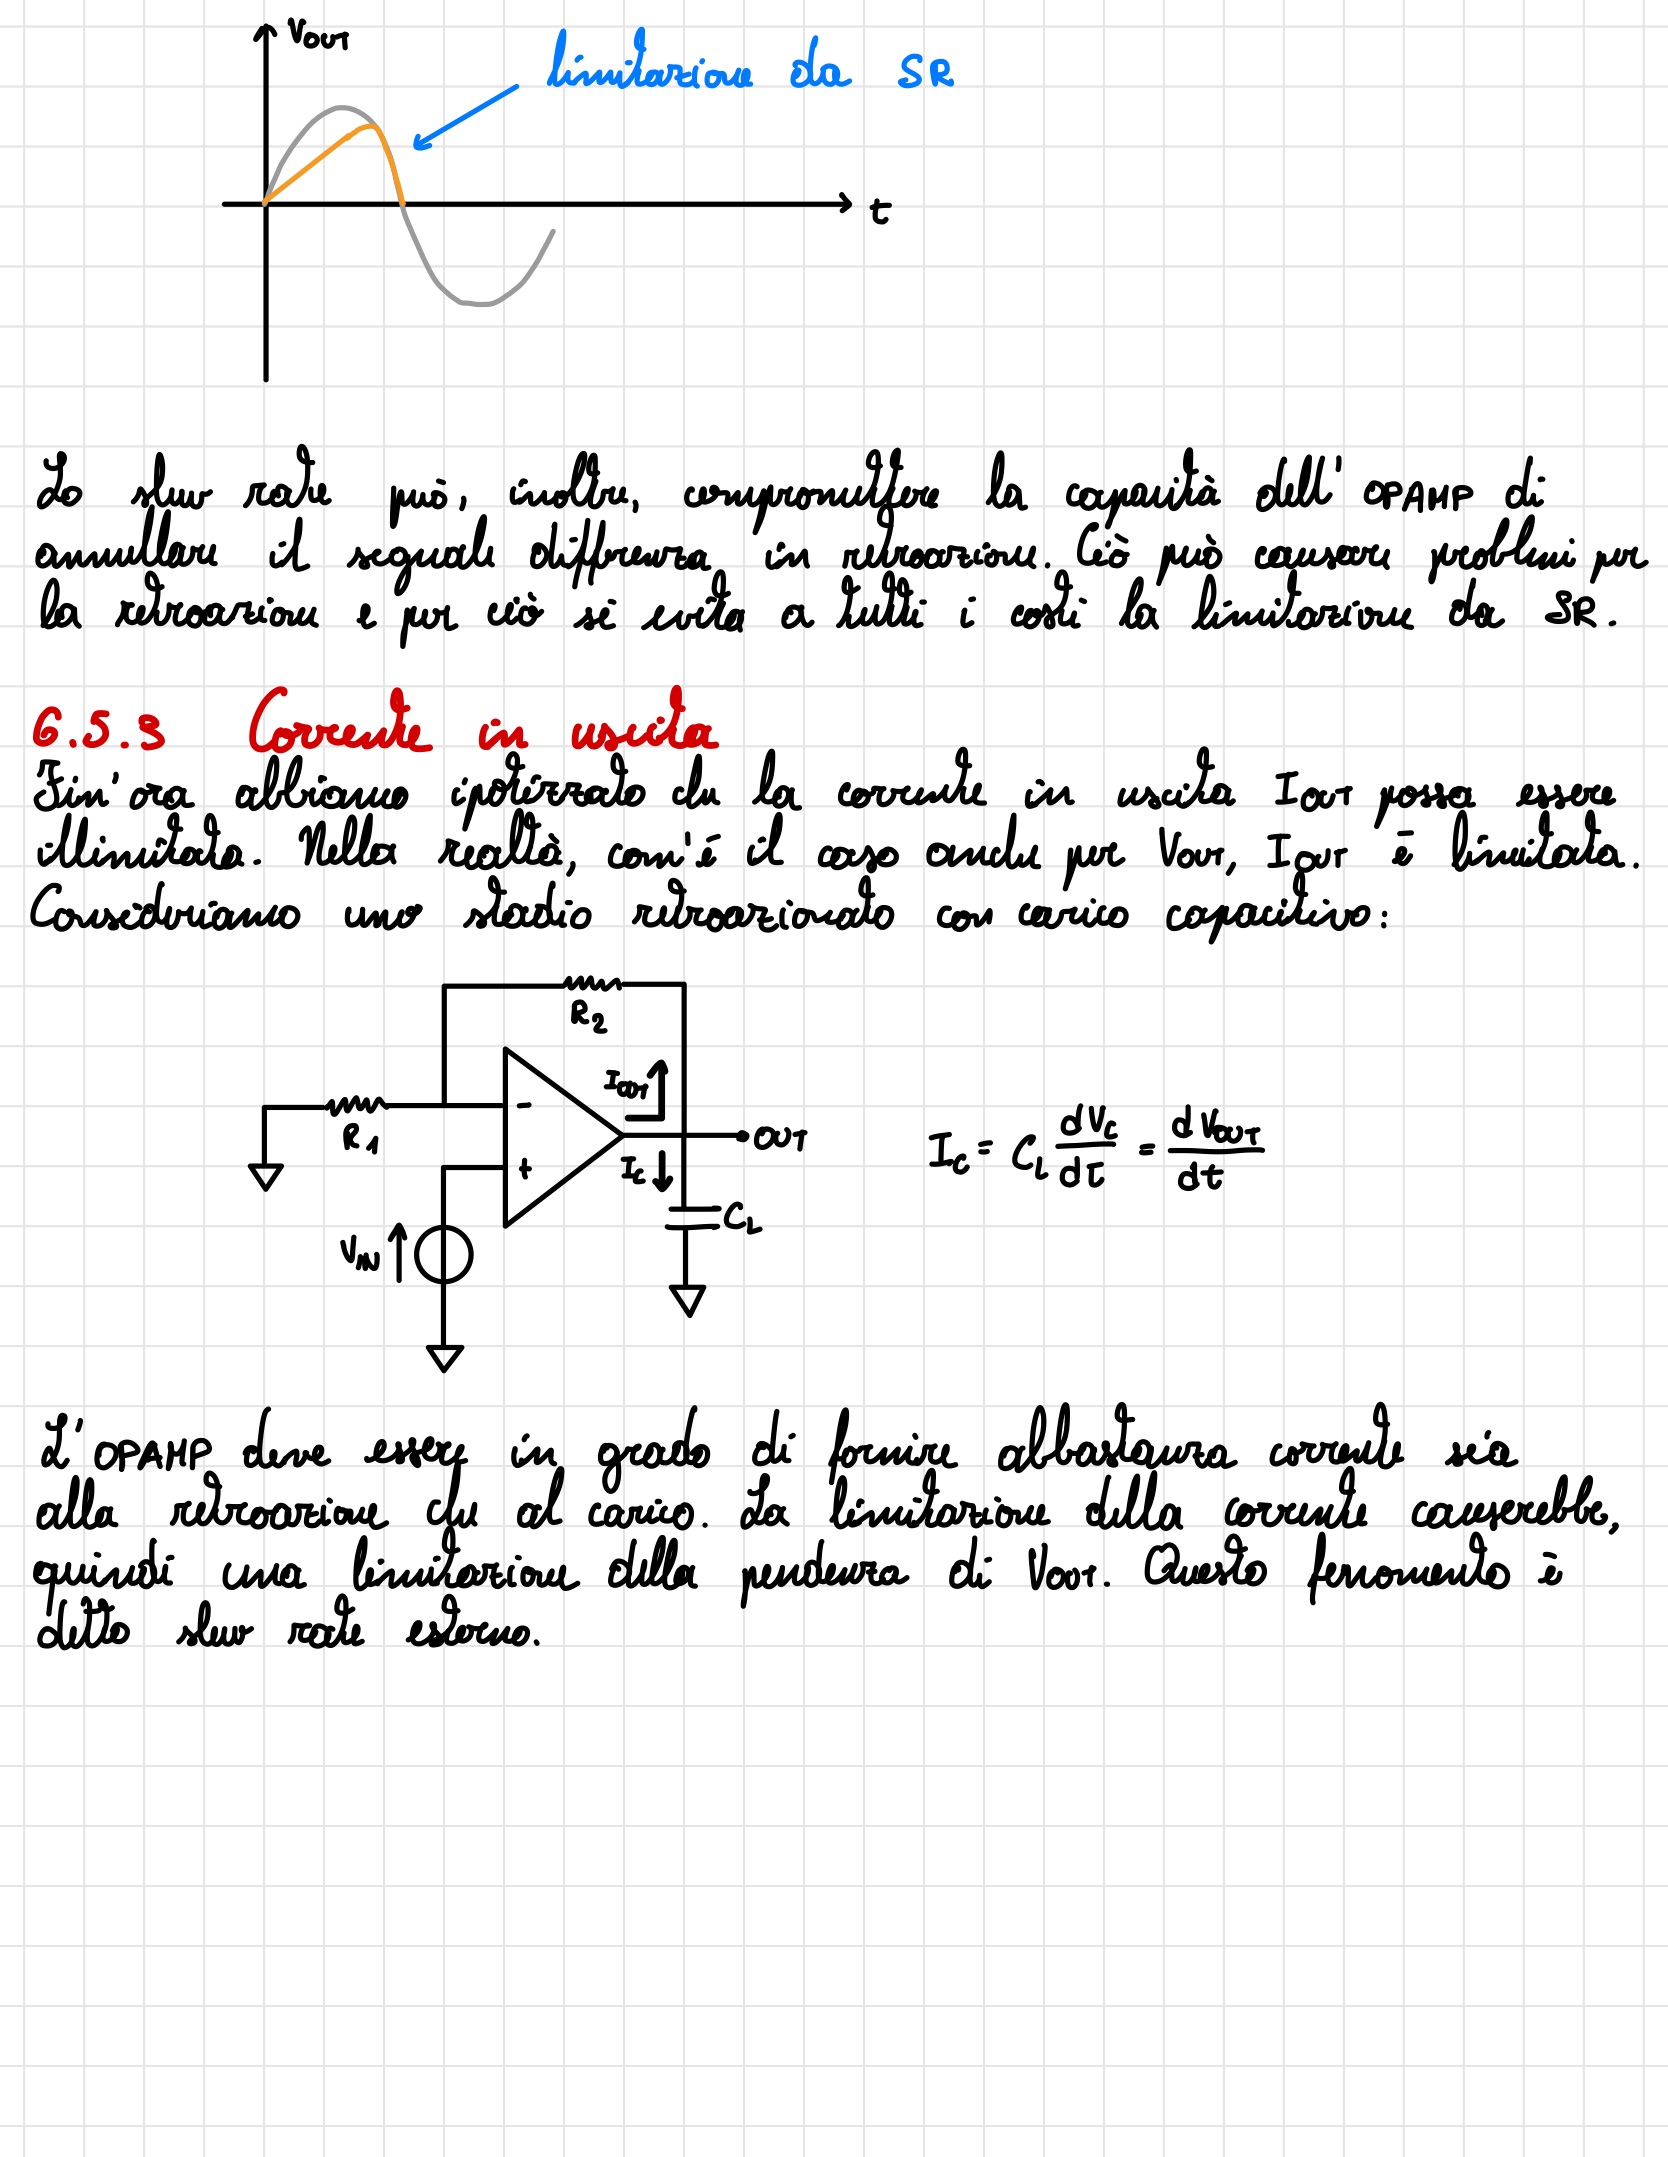 V_OUT
limitazione da SR
t
Lo slew rate può, inoltre, compromettere la capacità dell'OPAMP di
annullare il segnale differenza in retroazione. Ciò può causare problemi per
la retroazione e per ciò si evita a tutti i costi la limitazione da SR.
6.5.3 Corrente in uscita
Fin'ora abbiamo ipotizzato che la corrente in uscita I_OUT possa essere
illimitata. Nella realtà, com'è il caso anche per V_OUT, I_OUT è limitata.
Consideriamo uno stadio retroazionato con carico capacitivo:
R_2
I_OUT
-
R_1
OUT
I_C = C_L dV_C/dt = dV_OUT/dt
+
I_C
C_L
V_IN
L'OPAMP deve essere in grado di fornire abbastanza corrente sia
alla retroazione che al carico. La limitazione della corrente causerebbe,
quindi una limitazione della pendenza di V_OUT. Questo fenomento è
detto slew rate esterno.